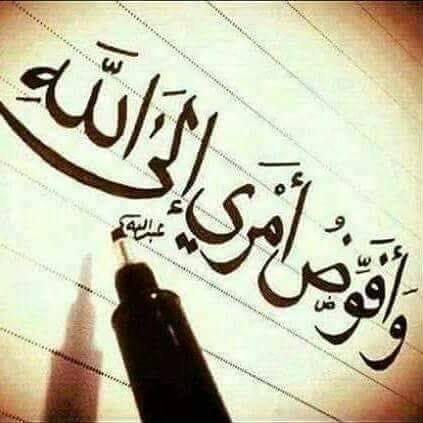 وَأُفَوِّضُ أَمْرِي إِلَى اللَّهِ
عبدالله